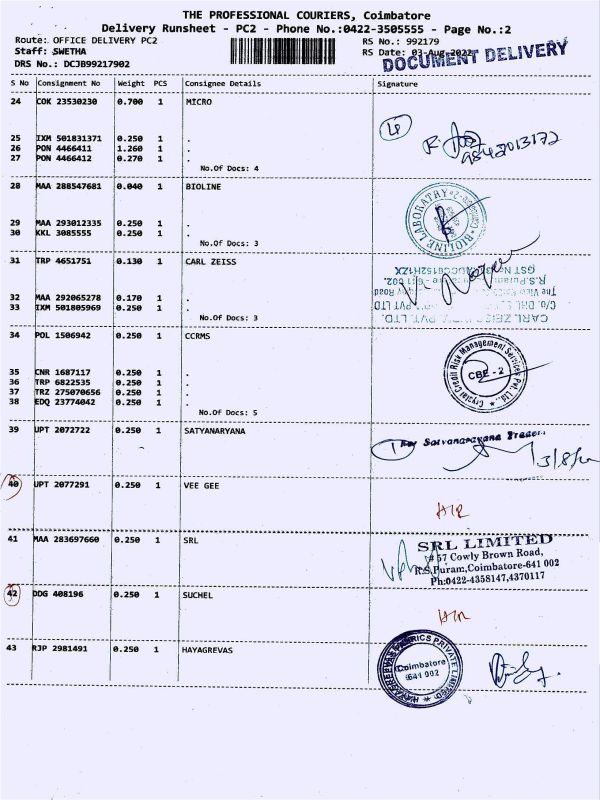 THE PROFESSIONAL COURIERS, Coimbatore
Delivery Runsheet - PC2 - Phone No.:0422-3505555 - Page No.:2
Route: OFFICE DELIVERY PC2
RS No.: 992179
Staff: SWETHA
RS Date: 03-Aug-2022
DRS No.: DCJB99217902
DOCUMENT DELIVERY
S No Consignment No Weight PCS Consignee Details Signature
24 COK 23530230 0.700 1 MICRO
25 IXM 501831371 0.250 1 .
26 PON 4466411 1.260 1 .
27 PON 4466412 0.270 1 .
No.Of Docs: 4
9842013172
28 MAA 288547681 0.040 1 BIOLINE
29 MAA 293012335 0.250 1 .
30 KKL 3085555 0.250 1 .
No.Of Docs: 3
BIOLINE LABORATRY
31 TRP 4651751 0.130 1 CARL ZEISS
32 MAA 292065278 0.170 1 .
33 IXM 501805969 0.250 1 .
No.Of Docs: 3
34 POL 1506942 0.250 1 CCRMS
35 CNR 1687117 0.250 1 .
36 TRP 6822535 0.250 1 .
37 TRZ 275070656 0.250 1 .
38 EDQ 23774042 0.250 1 .
No.Of Docs: 5
Crystal Credit Risk Management Services Pvt. Ltd.
CBE - 2
39 UPT 2072722 0.250 1 SATYANARYANA
Satyanarayana Traders
40 UPT 2077291 0.250 1 VEE GEE
41 MAA 283697660 0.250 1 SRL
SRL LIMITED
# 57 Cowly Brown Road,
R.S.Puram,Coimbatore-641 002
Ph:0422-4358147,4370117
42 DDG 408196 0.250 1 SUCHEL
43 RJP 2981491 0.250 1 HAYAGREVAS
Coimbatore
641 002